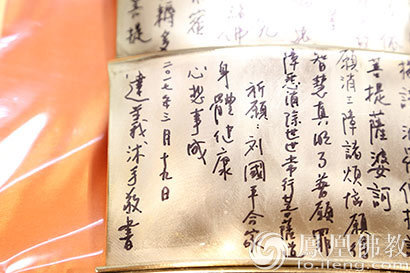 耨多
菩提
菩提薩婆訶
願消三障諸煩惱願得
智慧真明了普願罪
障悉消除世世常行菩薩道
祈願:劉國平合家
身體健康
心想事成
二〇一七年三月十九日
建義沐手敬書
鳳凰佛教
fo.ifeng.com